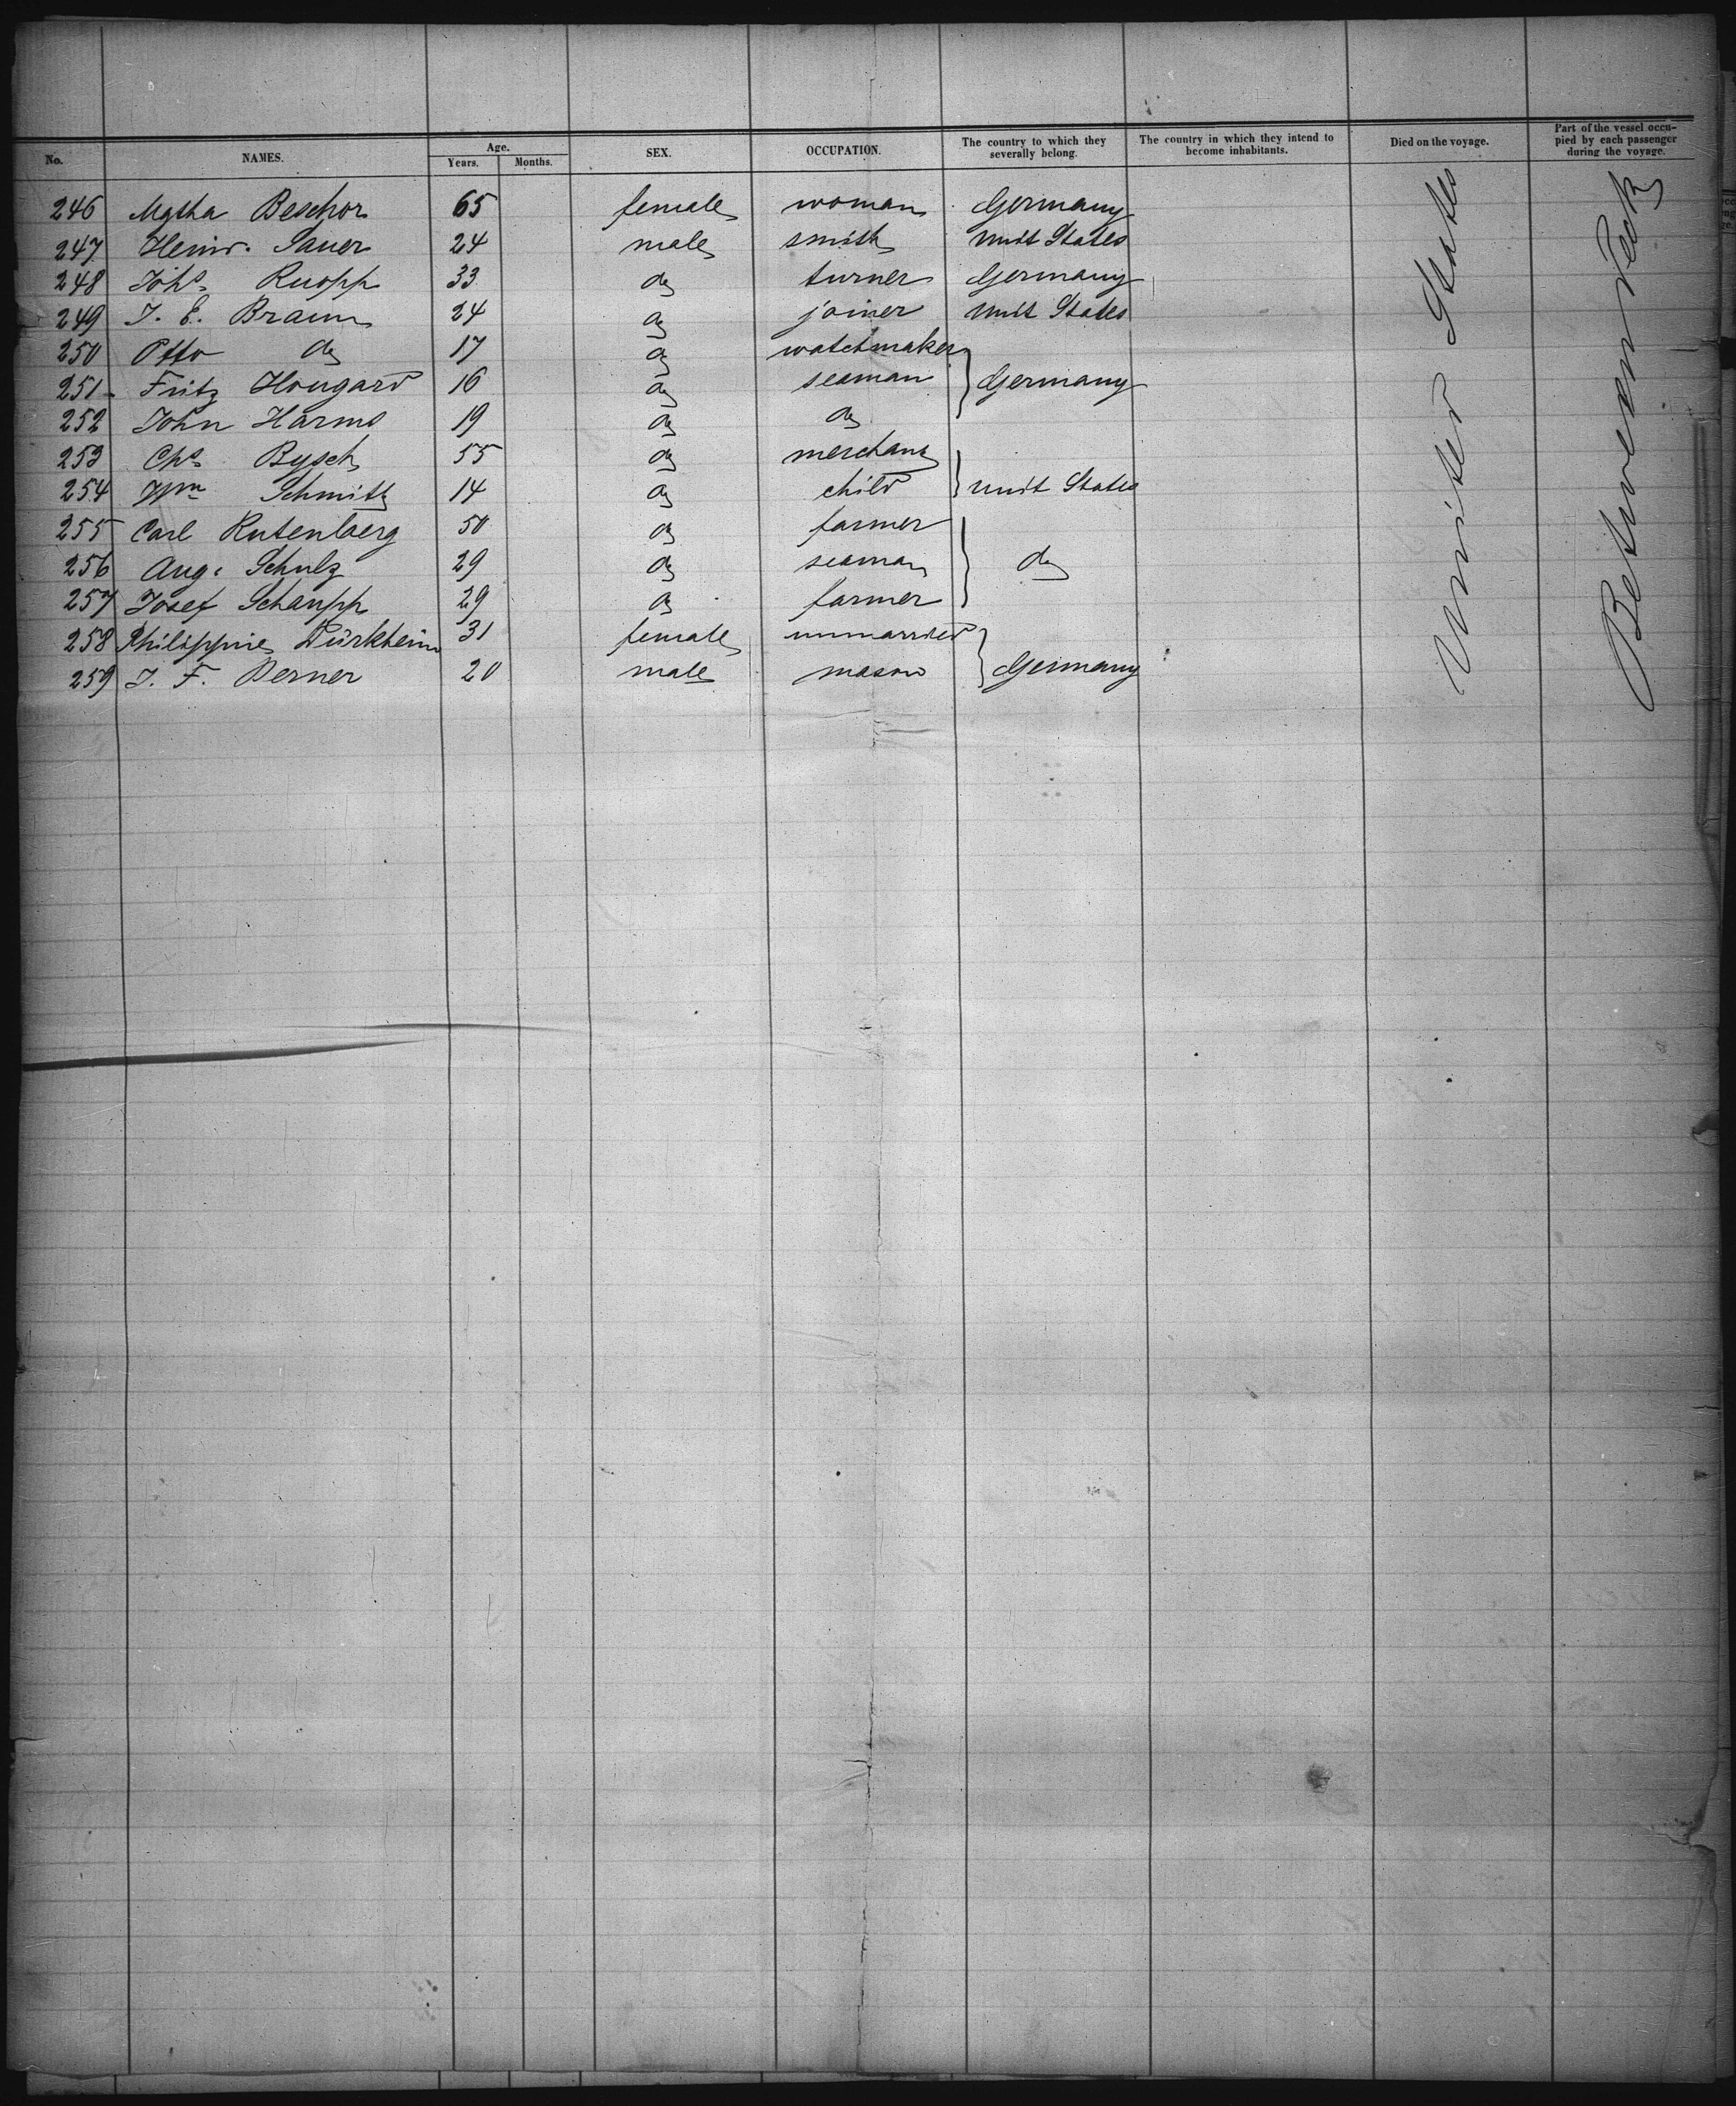 No. NAMES. Age. Years. Months. SEX. OCCUPATION. The country to which they severally belong. The country in which they intend to become inhabitants. Died on the voyage. Part of the vessel occupied by each passenger during the voyage.
246 Mgtha Beschor 65 female woman Germany
247 Heinr. Sauer 24 male smith Unit States
248 Johs. Ruopp 33 do turner Germany
249 J. E. Braun 24 do joiner Unit States
250 Otto do 17 do watchmaker
251 Fritz Hougard 16 do seaman Germany
252 John Harms 19 do do
253 Chs. Bysch 55 do merchant
254 Wm Schmitz 14 do child Unit States
255 Carl Rutenberg 50 do farmer
256 Aug. Schulz 29 do seaman do
257 Josef Schaupp 29 do farmer
258 Philippine Dürkheim 31 female unmarried
259 J. F. Berner 20 male mason Germany
United States
Between Deck